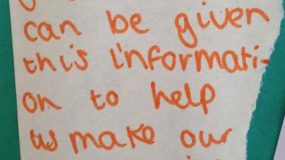 can be given
this informati-
on to help
us make our